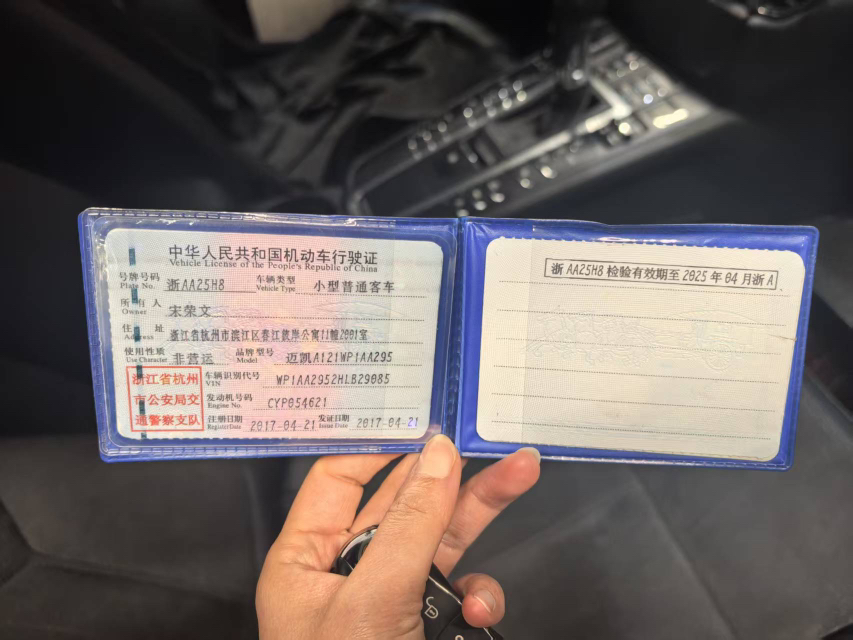 中华人民共和国机动车行驶证
Vehicle License of the People's Republic of China
号牌号码 浙AA25H8 车辆类型 小型普通客车
Plate No. Vehicle Type
所有人 宋荣文
Owner
住址 浙江省杭州市滨江区春江彼岸公寓11幢2001室
Address
使用性质 非营运 品牌型号 迈凯A121WP1AA295
Use Character Model
浙江省杭州
市公安局交
通警察支队
车辆识别代号 WP1AA2952HLB29085
VIN
发动机号码 CYP054621
Engine No.
注册日期 2017-04-21 发证日期 2017-04-21
Register Date Issue Date
浙AA25H8 检验有效期至 2025年04月浙A